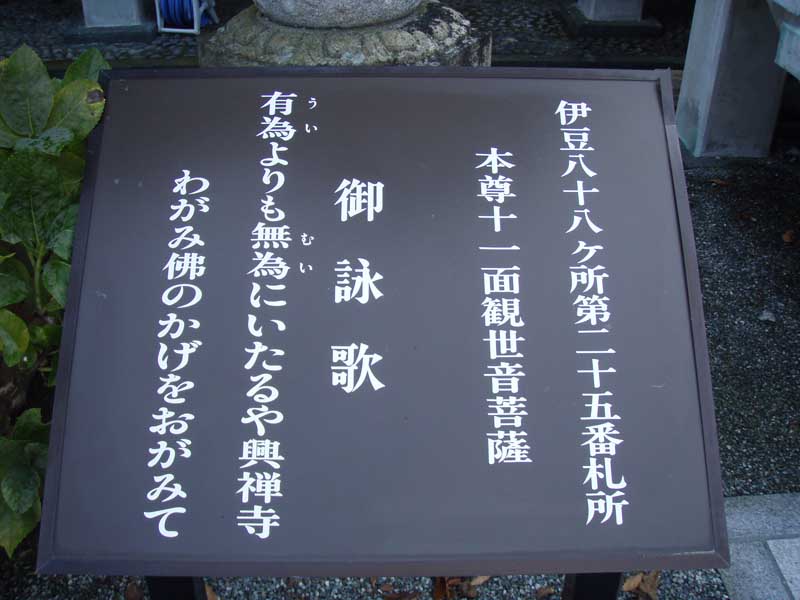 伊豆八十八ケ所第二十五番札所
本尊十一面観世音菩薩
御詠歌
有為よりも無為にいたるや興禅寺
うい
むい
わがみ佛のかげをおがみて